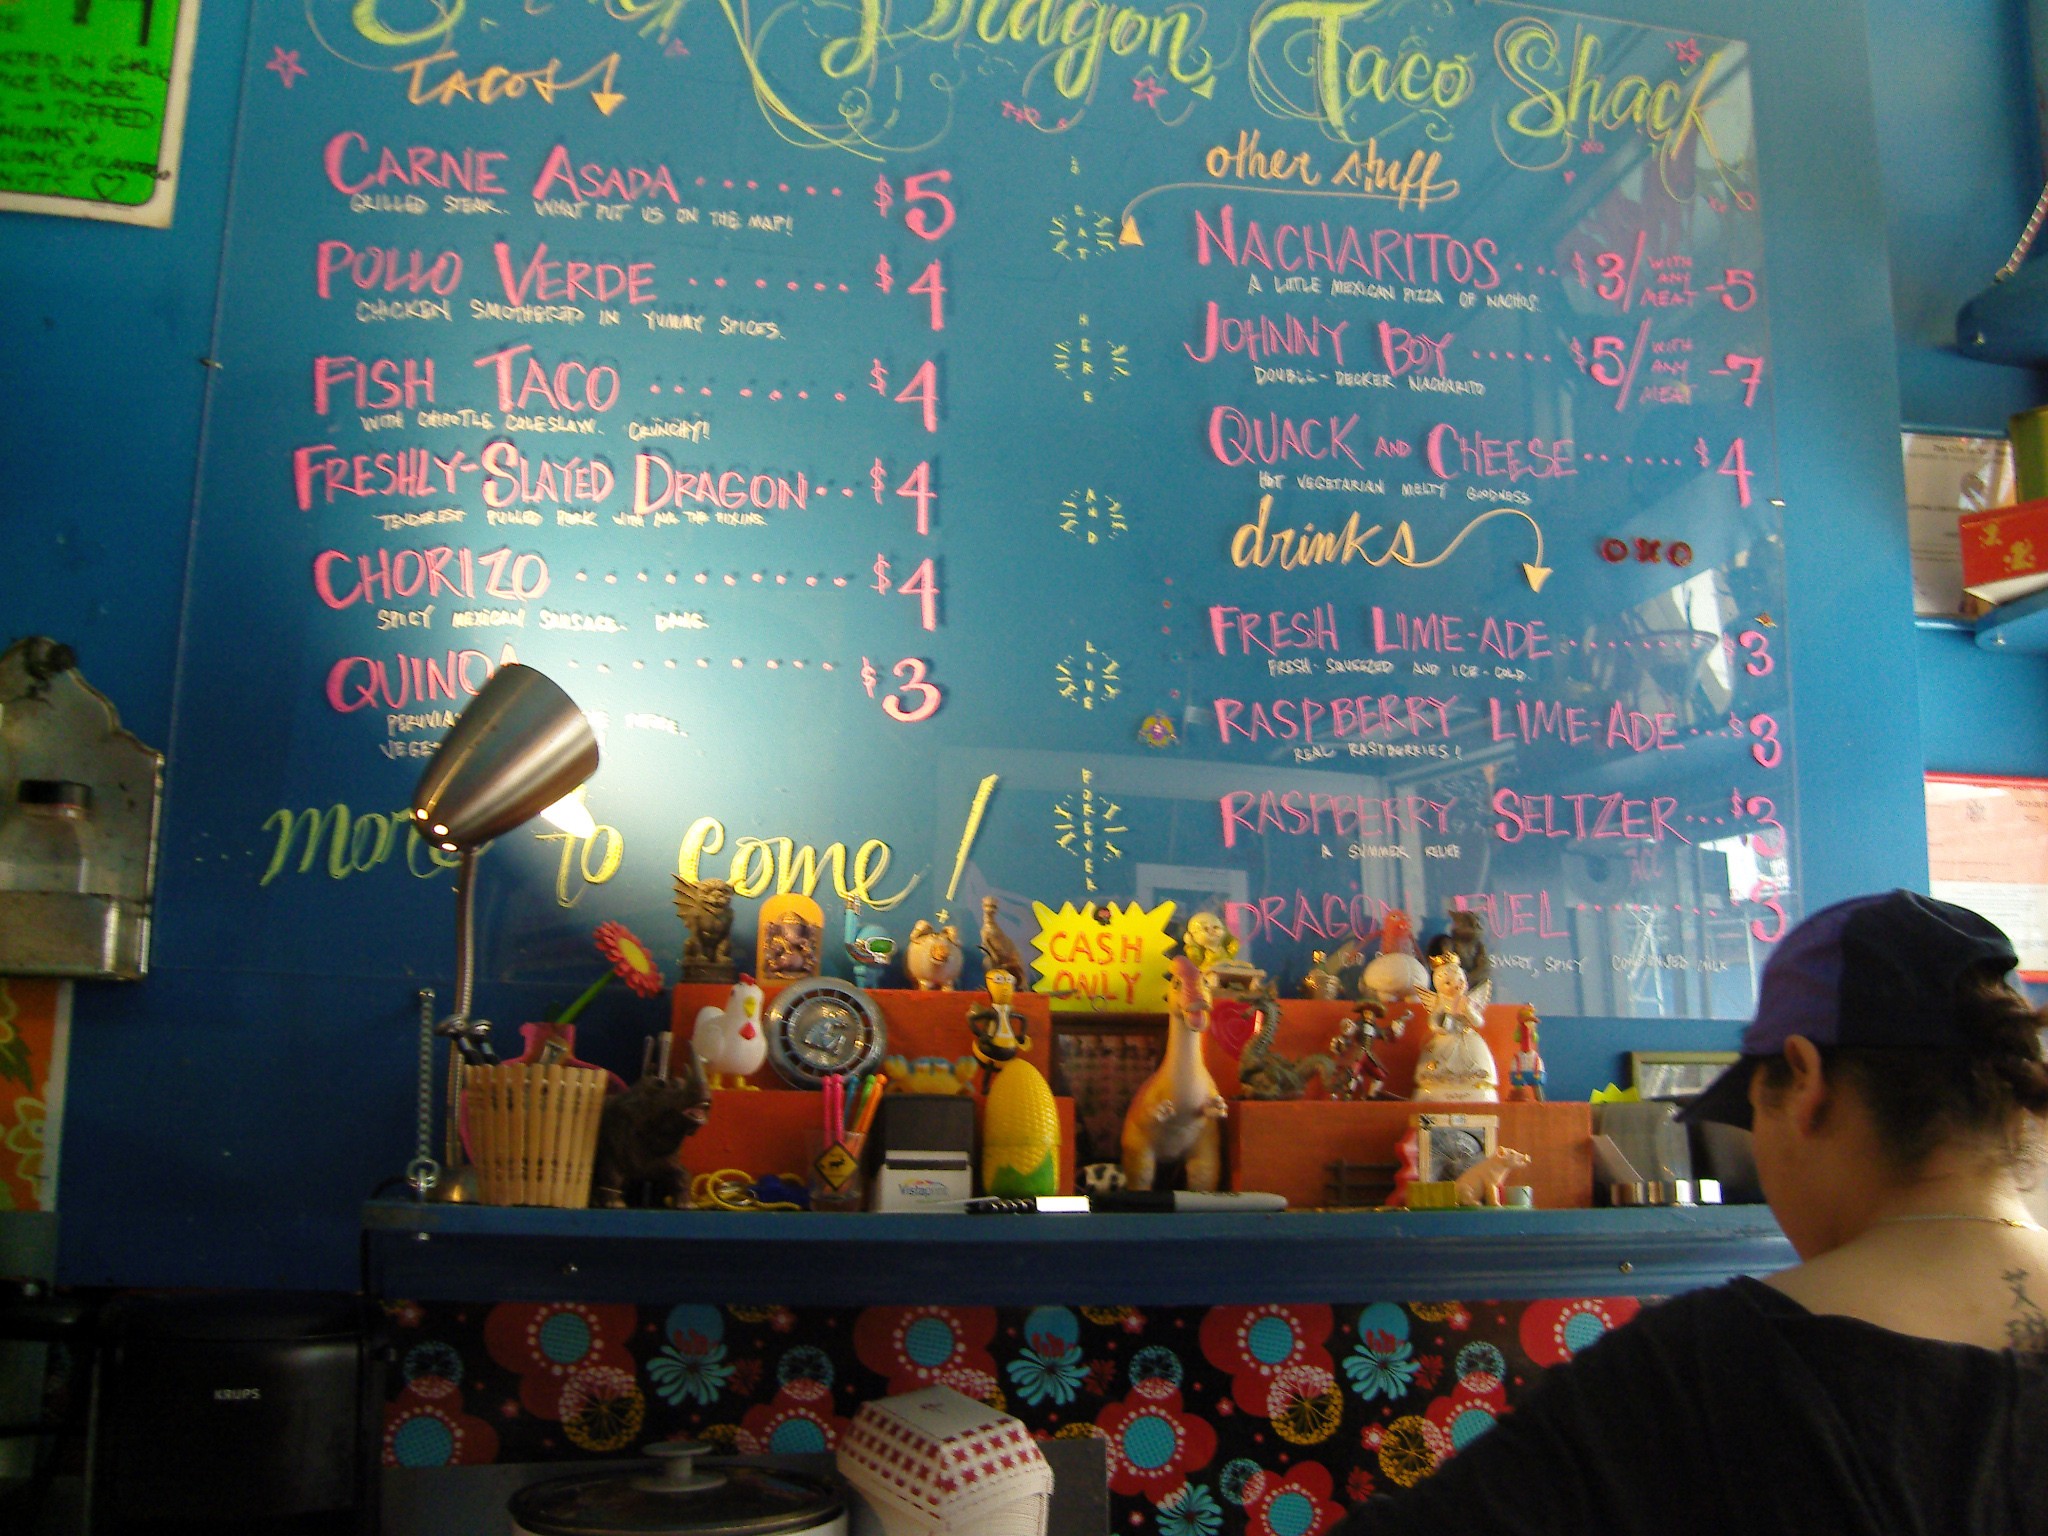 Dragon Taco Shack
TACOS
CARNE ASADA ...... $5
GRILLED STEAK. WHAT PUT US ON THE MAP!
POLLO VERDE ...... $4
CHICKEN SMOTHERED IN YUMMY SPICES.
FISH TACO ....... $4
WITH CHIPOTLE COLESLAW. CRUNCHY!
FRESHLY-SLAYED DRAGON .. $4
TENDEREST PULLED PORK WITH ALL THE FIXINS.
CHORIZO .......... $4
SPICY MEXICAN SAUSAGE. DANG.
QUINOA .......... $3
more to come!
EAT
HERE
AND
LIVE
FOREVER
other stuff
NACHARITOS ... $3/ WITH ANY MEAT -5
A LITTLE MEXICAN PIZZA OF NACHOS.
JOHNNY BOY ..... $5/ WITH ANY MEAT -7
DOUBLE-DECKER NACHARITO
QUACK AND CHEESE ...... $4
HOT VEGETARIAN MELTY GOODNESS
drinks
OXO
FRESH LIME-ADE ........ $3
FRESH-SQUEEZED AND ICE-COLD.
RASPBERRY LIME-ADE ... $3
REAL RASPBERRIES!
RASPBERRY SELTZER ... $3
A SUMMER
DRAGON FUEL ........ 3
SWEET, SPICY CONDENSED MILK
IN GARLIC
POWDER
→ TOPPED
CILANTRO
CASH
ONLY
Vistaprint
KRUPS